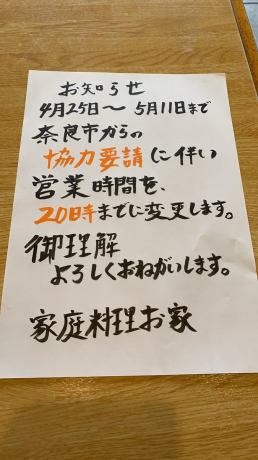 お知らせ
4月25日〜5月11日まで
奈良市からの
協力要請に伴い
営業時間を、
20時までに変更します。
御理解
よろしくおねがいします。
家庭料理お家